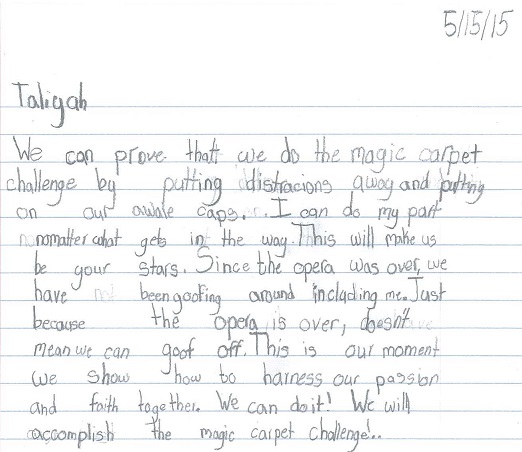 5/15/15
Taliyah
We can prove that we do the magic carpet
challenge by putting distracions away and putting
on our awake caps. I can do my part
nomatter what gets in the way. This will make us
be your stars. Since the opera was over, we
have been goofing around including me. Just
because the opera is over, doesn't
mean we can goof off. This is our moment
we show how to harness our passion
and faith together. We can do it! We will
accomplish the magic carpet challenge!..